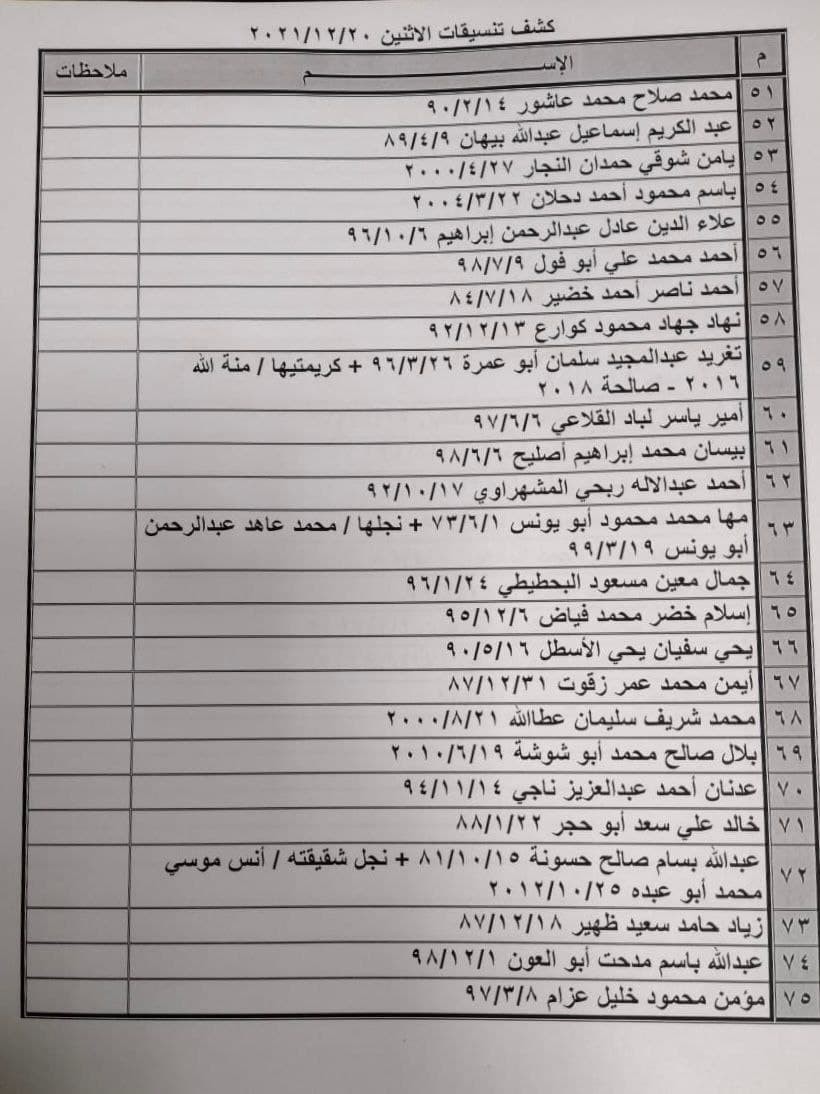 كشف تنسيقات الاثنين ٢٠٢١/١٢/٢٠
م الإســـــــــــــــــــــم ملاحظات
٥١ محمد صلاح محمد عاشور ٩٠/٢/١٤
٥٢ عبد الكريم إسماعيل عبدالله بيهان ٨٩/٤/٩
٥٣ يامن شوقي حمدان النجار ٢٠٠٠/٤/٢٧
٥٤ باسم محمود أحمد دحلان ٢٠٠٤/٣/٢٢
٥٥ علاء الدين عادل عبدالرحمن إبراهيم ٩٦/١٠/٦
٥٦ أحمد محمد علي أبو فول ٩٨/٧/٩
٥٧ أحمد ناصر أحمد خضير ٨٤/٧/١٨
٥٨ نهاد جهاد محمود كوارع ٩٢/١٢/١٣
٥٩ تغريد عبدالمجيد سلمان أبو عمرة ٩٦/٣/٢٦ + كريمتيها / منة الله
٢٠١٦ - صالحة ٢٠١٨
٦٠ أمير ياسر لباد القلاعي ٩٧/٦/٦
٦١ بيسان محمد إبراهيم أصليح ٩٨/٦/٦
٦٢ أحمد عبدالاله ربحي المشهراوي ٩٢/١٠/١٧
٦٣ مها محمد محمود أبو يونس ٧٣/٦/١ + نجلها / محمد عاهد عبدالرحمن
أبو يونس ٩٩/٣/١٩
٦٤ جمال معين مسعود البحطيطي ٩٦/١/٢٤
٦٥ إسلام خضر محمد فياض ٩٥/١٢/٦
٦٦ يحي سفيان يحي الأسطل ٩٠/٥/١٦
٦٧ أيمن محمد عمر زقوت ٨٧/١٢/٣١
٦٨ محمد شريف سليمان عطاالله ٢٠٠٠/٨/٢١
٦٩ بلال صالح محمد أبو شوشة ٢٠١٠/٦/١٩
٧٠ عدنان أحمد عبدالعزيز ناجي ٩٤/١١/١٤
٧١ خالد علي سعد أبو حجر ٨٨/١/٢٢
٧٢ عبدالله بسام صالح حسونة ٨١/١٠/١٥ + نجل شقيقته / أنس موسي
محمد أبو عبده ٢٠١٢/١٠/٢٥
٧٣ زياد حامد سعيد ظهير ٨٧/١٢/١٨
٧٤ عبدالله باسم مدحت أبو العون ٩٨/١٢/١
٧٥ مؤمن محمود خليل عزام ٩٧/٣/٨